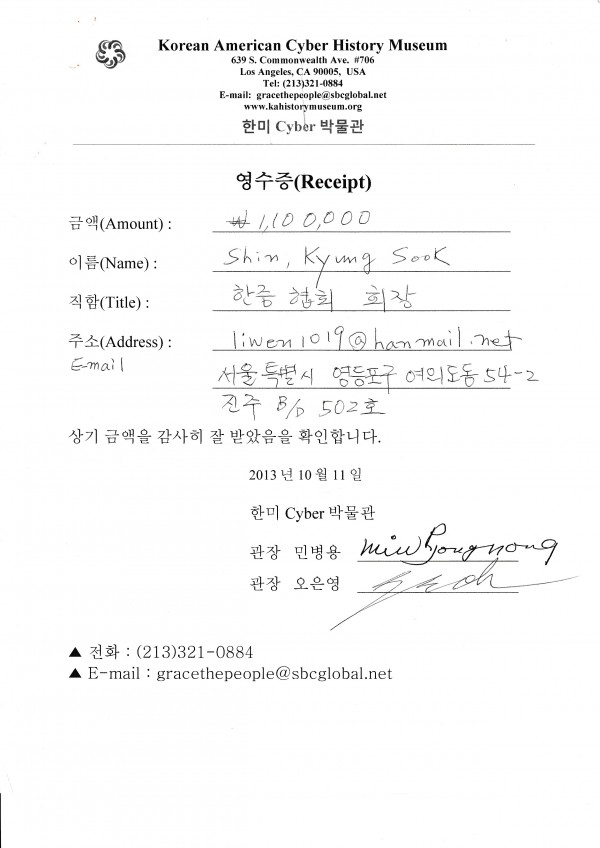 Korean American Cyber History Museum
639 S. Commonwealth Ave. #706
Los Angeles, CA 90005, USA
Tel: (213)321-0884
E-mail: gracethepeople@sbcglobal.net
www.kahistorymuseum.org
한미 Cyber 박물관
영수증(Receipt)
금액(Amount) : ₩ 1,100,000
이름(Name) : Shin, Kyung Sook
직함(Title) : 한중 협회 회장
주소(Address) : liwen1019@hanmail.net
E-mail 서울 특별시 영등포구 여의도동 54-2
진주 B/D 502호
상기 금액을 감사히 잘 받았음을 확인합니다.
2013 년 10 월 11 일
한미 Cyber 박물관
관장 민병용
관장 오은영
▲ 전화 : (213)321-0884
▲ E-mail : gracethepeople@sbcglobal.net